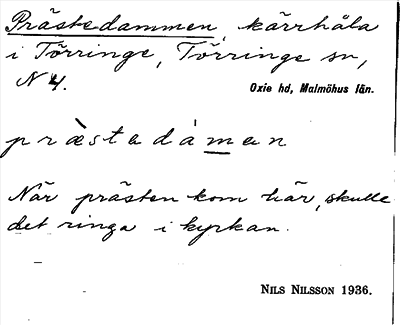 Prästedammen, kärrhåla
i Törringe, Törringe sn,
N 4.
Oxie hd, Malmöhus län.
præ̀stadámen
När prästen kom här, skulle
det ringa i kyrkan.
NILS NILSSON 1936.